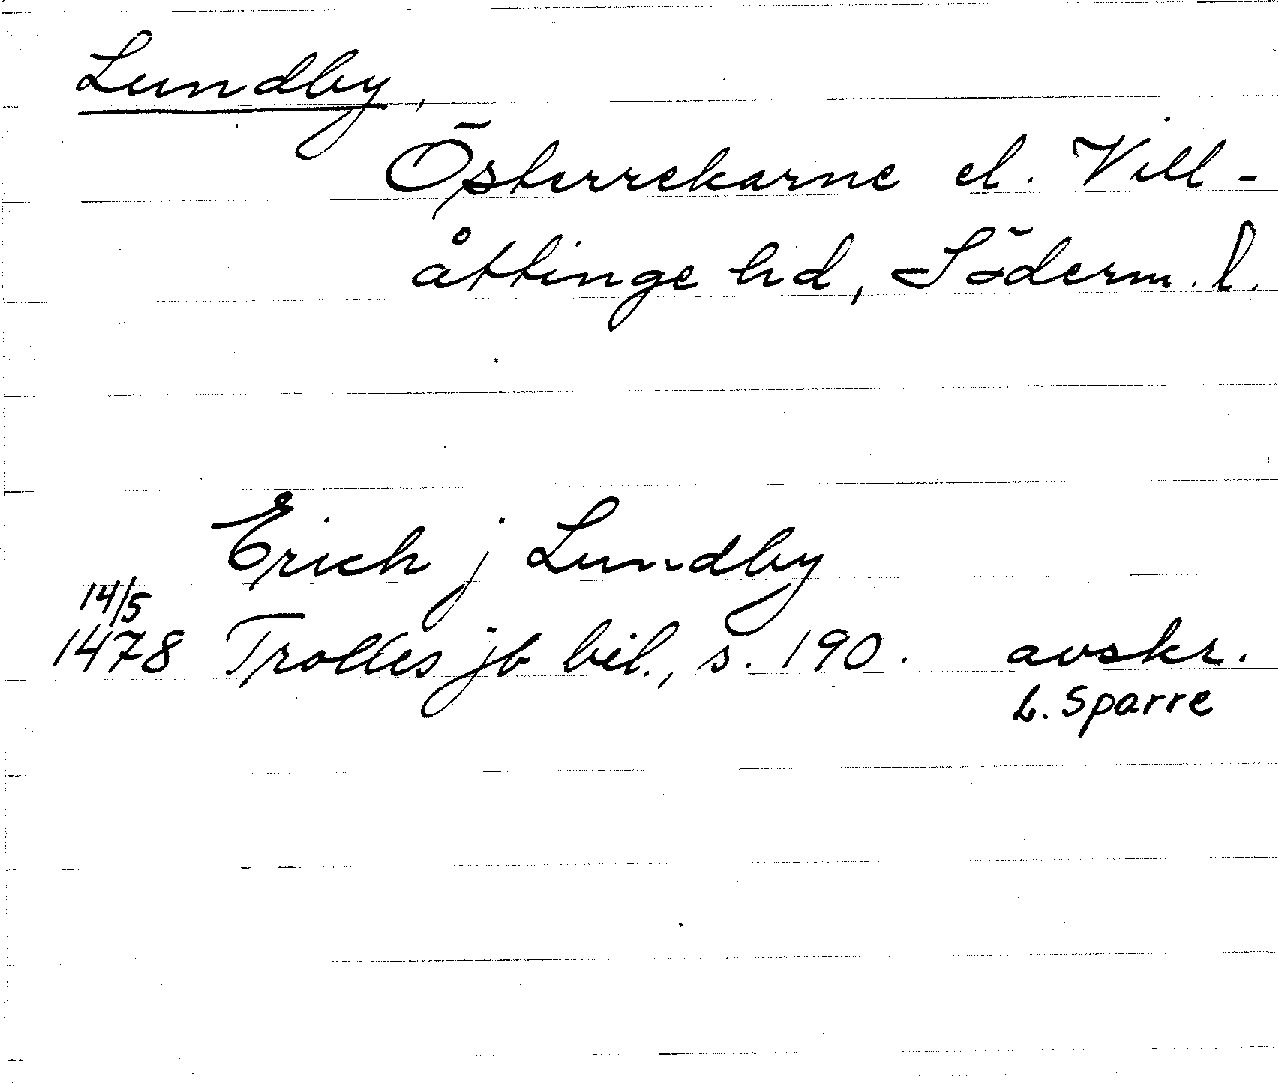 Lundby,
Österrekarne el. Vill-
åttinge hd, Söderm. l.
Erich j Lundby
14/5
1478 Trolles jb bil., s. 190. avskr.
L. Sparre